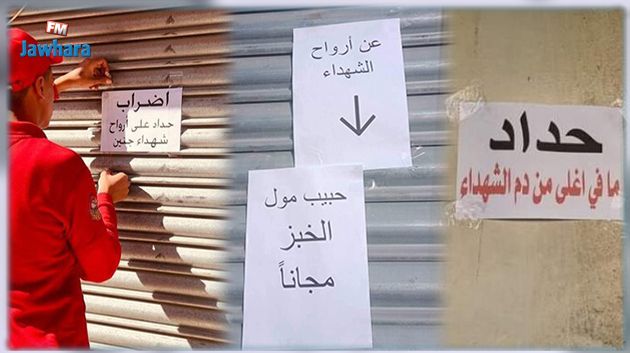 FM
Jawhara
اضراب
حداد على أرواح
شهداء جنين
عن أرواح
الشهداء
حبيب مول
الخبز
مجاناً
حداد
ما في اغلى من دم الشهداء